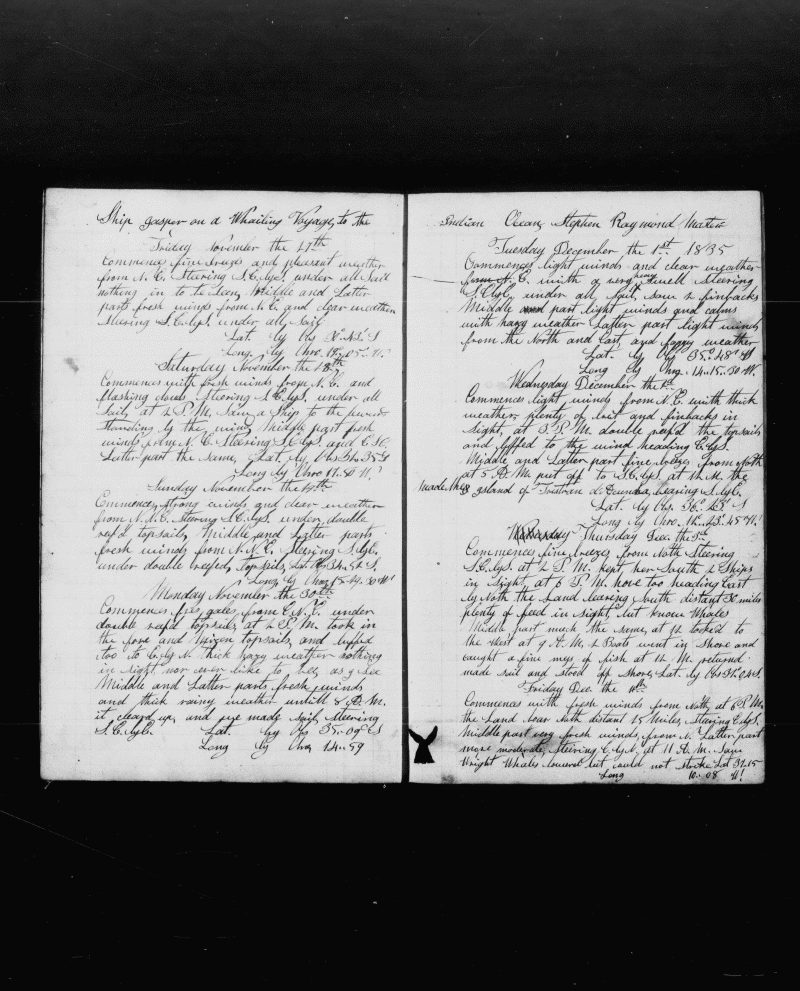 Ship Jasper on a Whailing Voyage, to the
Friday November the 27th
Commence fine breezes and pleasent weather
from N. E. Steering S.E.byE. under all Sail
nothing in to be Seen, Middle and Latter
parts fresh winds from N.E. and clear weather
Stearing S.E.byE. under all Sail
Lat. by Obs S
Long. by Chro. W.
Saturday November the 28th
Commences with fresh winds from N. E. and
flashing clouds Steering S.E.byE. under all
Sail, at 2 P.M. Saw a Ship to the
Standing by the wind, Middle part fresh
winds from N. E. Steering S.E.byE. and E.S.E.
Latter part the same, Lat. by Obs 34..35 S
Long by Chro W.
Sunday November the 29th
Commences strong winds and clear weather
from N.N.E. Steering S.E.byE. under double
reef'd topsails, Middle and Latter parts
fresh winds from N. N. E. Steering S.E.byE.
under double reefed Topsails, Lat. Obs 34..52 S.
Long. by Chro 30 W
Monday November the 30th
Commences free gales, from E.N.E. under
double reef'd topsails, at 2 P.M. took in
the fore and Mizen topsails, and luffed
too to E.by N. thick hazy weather nothing
in Sight, nor ever like to be, as I See
Middle and Latter parts fresh winds
and thick rainy weather untill 8 A.M.
it cleard up, and we made Sail, Steering
S.E.byE. Lat. by Obs 35..09 S
Long by Chro 14..59
Indian Ocean, Stephen Raymond Master
Tuesday December the 1st 1835
Commences light winds and clear weather
from N. E. with a very heavy Swell Steering
S.E.byE. under all Sail, Saw 2 finbacks
Middle part light winds and calms
with hazy weather Latter part light winds
from the North and East, and foggy weather
Lat. by Obs 35°..48' S
Long by Chro. 14..15..30 W.
Wednsday December the 2d
Commences light winds from N.E. with thick
weather, plenty of brit and finbacks in
Sight, at 3 P.M. double reef'd the topsails
and luffed to the wind heading E.byS.
Middle and Latter part fine breezes from North
at 5 A.M. put off to S.E.byE. at 12 M. the
made the Island of Tristran de Cuenha, bearing S.byE.
Lat. by Obs. 36°..23' S
Long by Chro. 12..23..45 W.
Wednesday Thursday Dec. the 3d
Commences fine breezes from North Steering
S.E.byE. at 2 P.M. kept her South 2 Ships
in Sight, at 6 P.M. hove too heading East
by North the Land bearing South distant 30 miles
plenty of feed in sight, but know Whales
Middle part much the same, at 12 tacked to
the West at 9 A.M. 2 Boats went in Shore and
caught a fine mess of fish at 12 M. returned
made sail and Stood off Shore, Lat. by Obs 37..04 S.
Friday Dec. the 4th
Commences with fresh winds from North, at 6 P.M.
the Land bore North distant 15 Miles, Stearing E.byS.
Middle part very fresh winds, from N. Latter part
more moderate, Steering E.byN. at 11 A.M. Saw
Wright Whales lowered but could not strike Lat 37..15
Long 10..08 W.